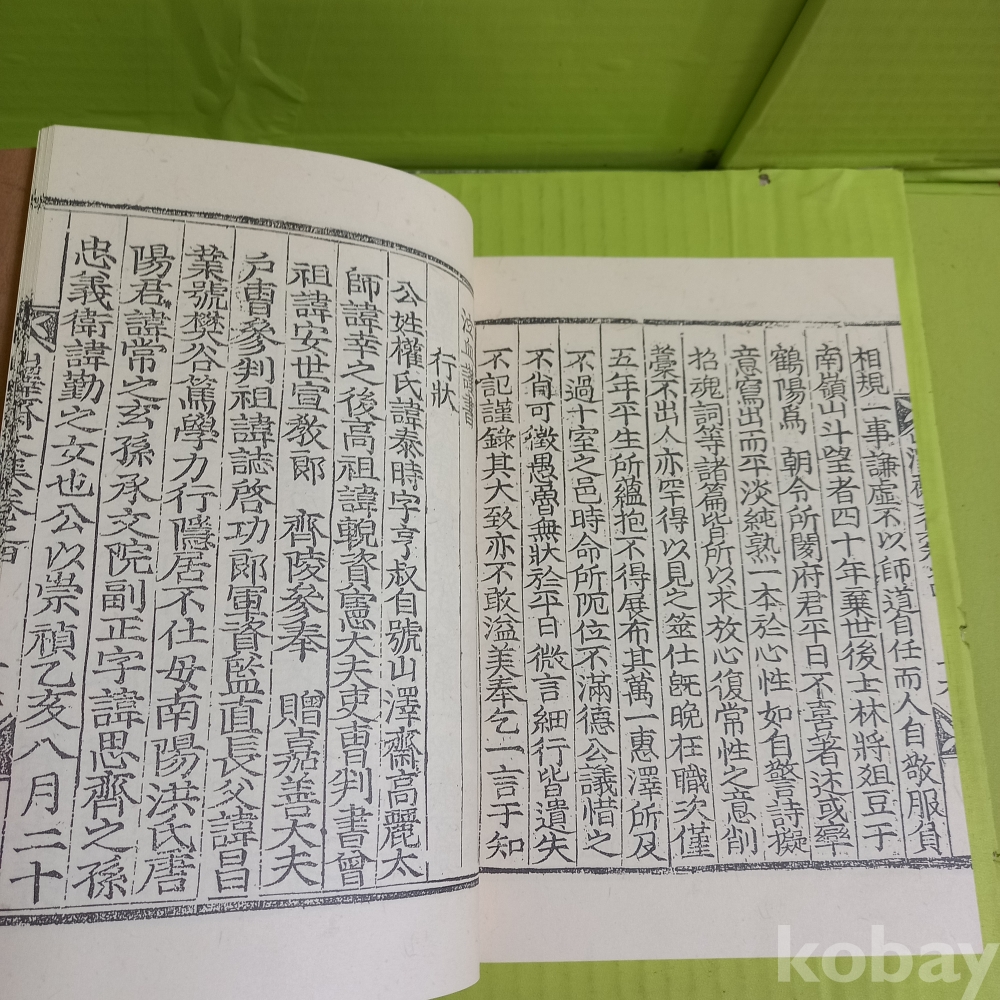 相規一事謙虛不以師道自任而人自敬服負
南嶺山斗望者四十年棄世後士林將俎豆于
鶴陽焉 朝令所閡府君平日不喜著述或
意寫出而平淡純熟一本於心性如自警詩擬
招魂詞等諸篇皆所以求放心復常性之意削
藁不出人亦罕得以見之筮仕旣晚枉職次僅
五年平生所蘊抱不得展布其萬一惠澤所及
不過十室之邑時命所阨位不滿德公議惜之
不肖可徵愚魯無狀於平日微言細行皆遺失
不記謹錄其大致亦不敢溢美奉乞一言于知
泣血謹書
行狀
公姓權氏諱泰時字亨叔自號山澤齋高麗太
師諱幸之後高祖諱輗資憲大夫吏曹判書曾
祖諱安世宣敎郎 齊陵參奉 贈嘉善大夫
戶曹參判祖諱誌啓功郞軍資監直長父諱昌
業號樊谷篤學力行隱居不仕母南陽洪氏唐
陽君諱常之玄孫承文院副正字諱思齊之孫
忠義衛諱勤之女也公以崇禎乙亥八月二十
山澤齋文集卷之四
kobay